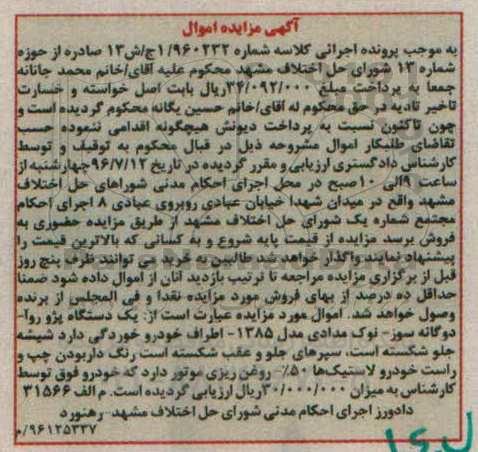 آگهی مزایده اموال
به موجب پرونده اجرائی کلاسه شماره ۱/۹۶۰۲۳۲ج/ش۱۳ صادره از حوزه
شماره ۱۳ شورای حل اختلاف مشهد محکوم علیه آقای/خانم محمد جانانه
جمعا به پرداخت مبلغ ۳۴/۰۹۲/۰۰۰ریال بابت اصل خواسته و خسارت
تاخیر تادیه در حق محکوم له آقای/خانم حسین یگانه محکوم گردیده است و
چون تاکنون نسبت به پرداخت دیونش هیچگونه اقدامی ننموده حسب
تقاضای طلبکار اموال مشروحه ذیل در قبال محکوم به توقیف و توسط
کارشناس دادگستری ارزیابی و مقرر گردیده در تاریخ ۹۶/۷/۱۲چهارشنبه از
ساعت ۹الی ۱۰صبح در محل اجرای احکام مدنی شوراهای حل اختلاف
مشهد واقع در میدان شهدا خیابان عبادی روبروی عبادی ۸ اجرای احکام
مجتمع شماره یک شورای حل اختلاف مشهد از طریق مزایده حضوری به
فروش برسد مزایده از قیمت پایه شروع و به کسانی که بالاترین قیمت را
پیشنهاد نمایند واگذار خواهد شد طالبین به خرید می توانند ظرف پنج روز
قبل از برگزاری مزایده مراجعه تا ترتیب بازدید آنان از اموال داده شود ضمنا
حداقل ده درصد از بهای فروش مورد مزایده نقدا و فی المجلس از برنده
وصول خواهد شد. اموال مورد مزایده عبارت است از: یک دستگاه پژو روآ-
دوگانه سوز- نوک مدادی مدل ۱۳۸۵- اطراف خودرو خوردگی دارد شیشه
جلو شکسته است، سپرهای جلو و عقب شکسته است رنگ داربودن چپ و
راست خودرو لاستیک‌ها ۵۰٪- روغن ریزی موتور دارد که خودرو فوق توسط
کارشناس به میزان ۳۰/۰۰۰/۰۰۰ریال ارزیابی گردیده است. م الف ۳۱۵۶۶
دادورز اجرای احکام مدنی شورای حل اختلاف مشهد-رهنورد
۹۶۱۲۵۳۳۷/م